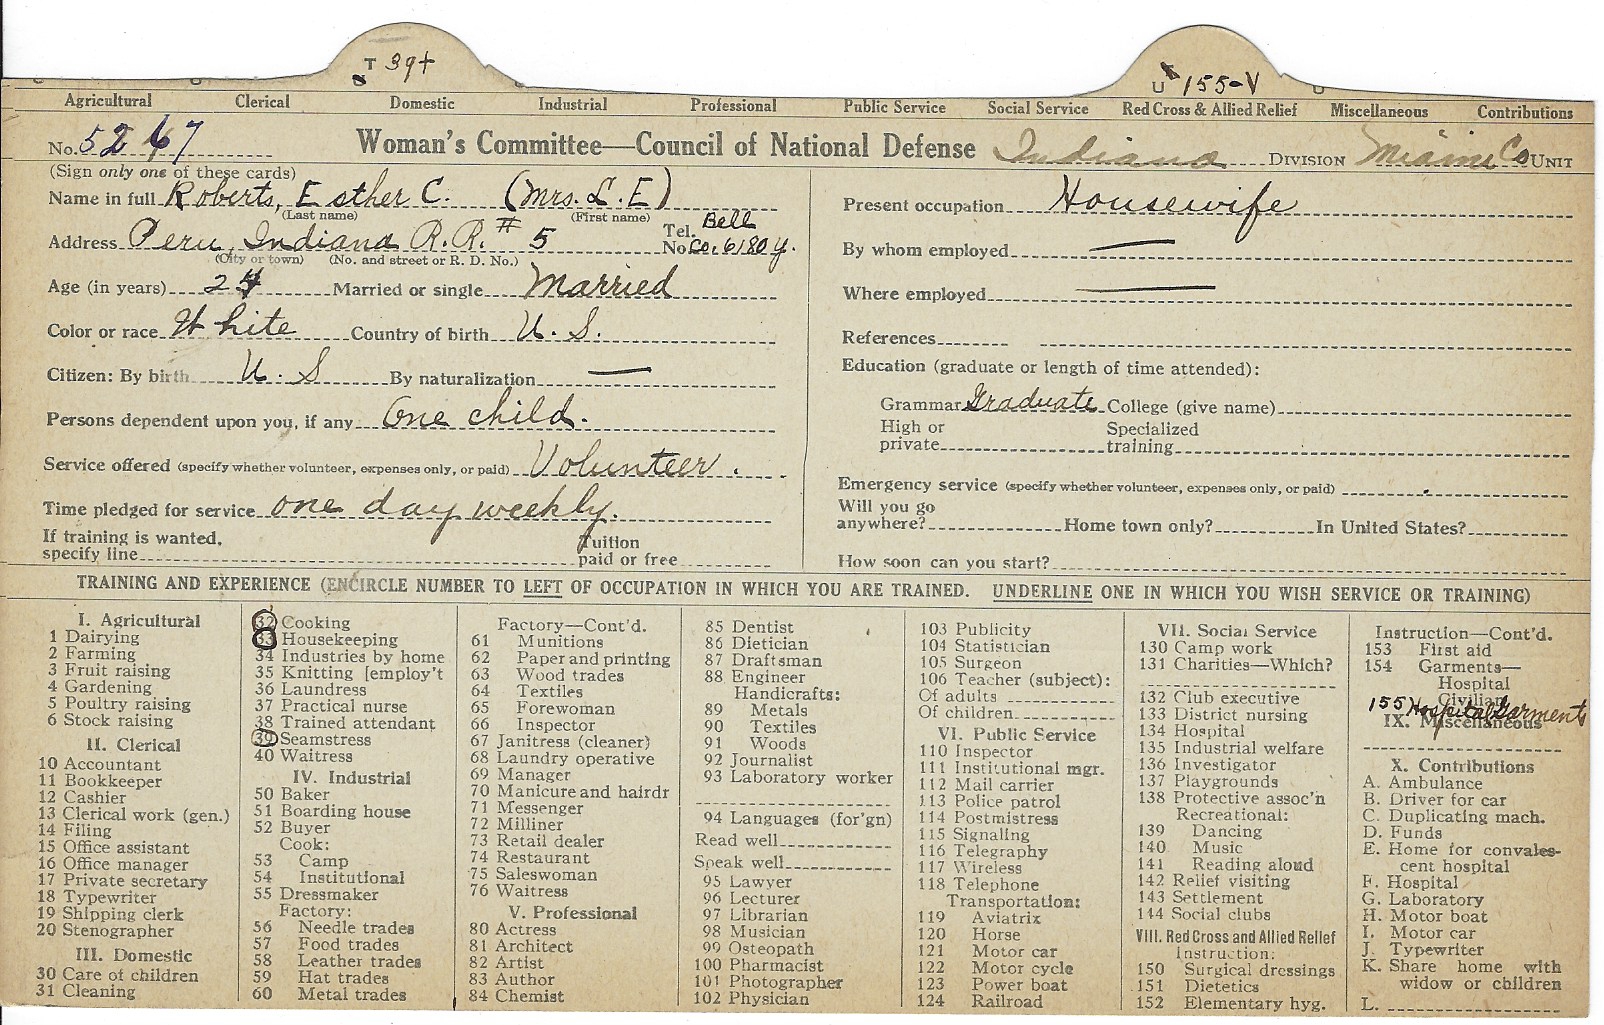 T 39+
U 155-V
Agricultural Clerical Domestic Industrial Professional Public Service Social Service Red Cross & Allied Relief Miscellaneous Contributions
No. 5267 Woman's Committee—Council of National Defense Indiana DIVISION Miami Co UNIT
(Sign only one of these cards)
Name in full Roberts, Esther C. (Mrs. L. E)
(Last name) (First name)
Address Peru, Indiana R.R. # 5 Tel. No. Bell Co. 6180 y.
(City or town) (No. and street or R. D. No.)
Age (in years) 24 Married or single Married
Color or race White Country of birth U. S.
Citizen: By birth U. S By naturalization —
Persons dependent upon you, if any One child.
Service offered (specify whether volunteer, expenses only, or paid) Volunteer.
Time pledged for service one day weekly.
If training is wanted, Tuition
specify line paid or free
Present occupation Housewife
By whom employed —
Where employed —
References
Education (graduate or length of time attended):
Grammar Graduate College (give name)
High or Specialized
private training
Emergency service (specify whether volunteer, expenses only, or paid)
Will you go
anywhere? Home town only? In United States?
How soon can you start?
TRAINING AND EXPERIENCE (ENCIRCLE NUMBER TO LEFT OF OCCUPATION IN WHICH YOU ARE TRAINED. UNDERLINE ONE IN WHICH YOU WISH SERVICE OR TRAINING)
I. Agricultural
1 Dairying
2 Farming
3 Fruit raising
4 Gardening
5 Poultry raising
6 Stock raising
II. Clerical
10 Accountant
11 Bookkeeper
12 Cashier
13 Clerical work (gen.)
14 Filing
15 Office assistant
16 Office manager
17 Private secretary
18 Typewriter
19 Shipping clerk
20 Stenographer
III. Domestic
30 Care of children
31 Cleaning
32 Cooking
33 Housekeeping
34 Industries by home
35 Knitting [employ't
36 Laundress
37 Practical nurse
38 Trained attendant
39 Seamstress
40 Waitress
IV. Industrial
50 Baker
51 Boarding house
52 Buyer
Cook:
53 Camp
54 Institutional
55 Dressmaker
Factory:
56 Needle trades
57 Food trades
58 Leather trades
59 Hat trades
60 Metal trades
Factory—Cont'd.
61 Munitions
62 Paper and printing
63 Wood trades
64 Textiles
65 Forewoman
66 Inspector
67 Janitress (cleaner)
68 Laundry operative
69 Manager
70 Manicure and hairdr
71 Messenger
72 Milliner
73 Retail dealer
74 Restaurant
75 Saleswoman
76 Waitress
V. Professional
80 Actress
81 Architect
82 Artist
83 Author
84 Chemist
85 Dentist
86 Dietician
87 Draftsman
88 Engineer
Handicrafts:
89 Metals
90 Textiles
91 Woods
92 Journalist
93 Laboratory worker
94 Languages (for'gn)
Read well
Speak well
95 Lawyer
96 Lecturer
97 Librarian
98 Musician
99 Osteopath
100 Pharmacist
101 Photographer
102 Physician
103 Publicity
104 Statistician
105 Surgeon
106 Teacher (subject):
Of adults
Of children
VI. Public Service
110 Inspector
111 Institutional mgr.
112 Mail carrier
113 Police patrol
114 Postmistress
115 Signaling
116 Telegraphy
117 Wireless
118 Telephone
Transportation:
119 Aviatrix
120 Horse
121 Motor car
122 Motor cycle
123 Power boat
124 Railroad
VII. Social Service
130 Camp work
131 Charities—Which?
132 Club executive
133 District nursing
134 Hospital
135 Industrial welfare
136 Investigator
137 Playgrounds
138 Protective assoc'n
Recreational:
139 Dancing
140 Music
141 Reading aloud
142 Relief visiting
143 Settlement
144 Social clubs
VIII. Red Cross and Allied Relief
Instruction:
150 Surgical dressings
151 Dietetics
152 Elementary hyg.
Instruction—Cont'd.
153 First aid
154 Garments—
Hospital
Civilian
155 Hospital Garments
IX. Miscellaneous
X. Contributions
A. Ambulance
B. Driver for car
C. Duplicating mach.
D. Funds
E. Home for convales-
cent hospital
F. Hospital
G. Laboratory
H. Motor boat
I. Motor car
J. Typewriter
K. Share home with
widow or children
L.